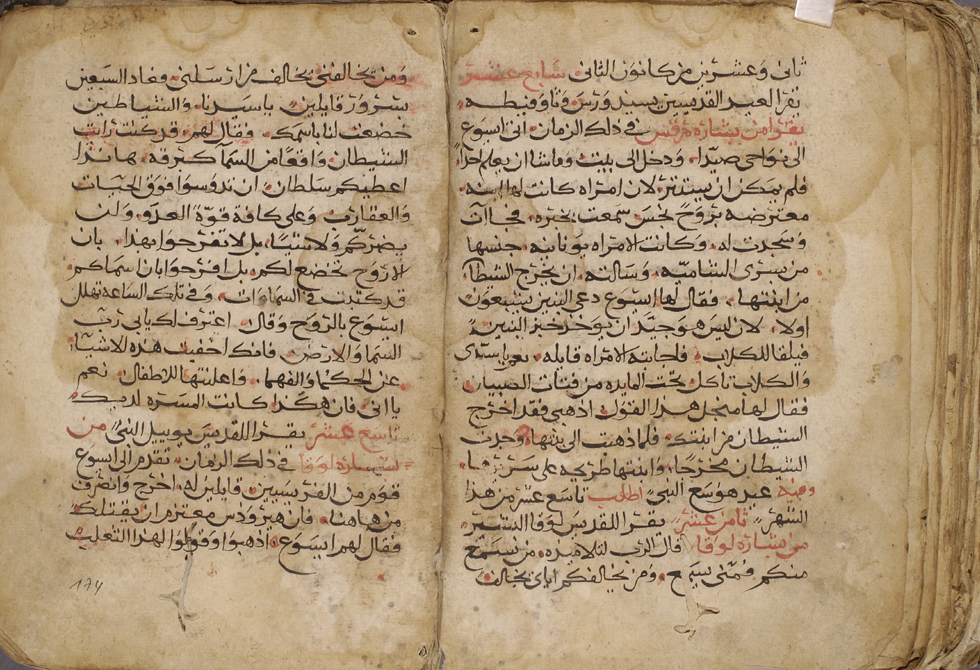 ثانى وعشرين من كانون الثانى سابع عشر
نقرا العيد القديسين
يقرا من بشاره مرقس في ذلك الزمان اتى ايسوع
الى نواحى صيدا ودخل الى بيت وماشا ان يعلم احدا
فلم يمكن ان يستتر لان امراه كانت لها ابنه
معترضه بروح نجس سمعت بخبره فجاات
وسجدت له وكانت الامراه يونانيه جنسها
من سرى الشاميه وسالته ان يخرج الشيطان
من ابنتها فقال لها ايسوع دعى البنين يشبعون
اولا لان ليس هو جيد ان يوخذ خبز البنين
فيلقا للكلاب فاجابته الامراه قايله نعم يا سيدى
والكلاب تاكل تحت المايده من فتات الصبيان
فقال لها منجل هذا القول اذهبى فقد اخرج
الشيطان من ابنتك فلما ذهبت الى بيتها وجدت
الشيطان مخرجا وابنتها طريحه على سريرها
وفيه عيد هوسع النبى اطلب تاسع عشر من هذا
الشهر ثامن عشر يقرا للقديس لوقا البشير
من بشاره لوقا قال الرب لتلاميذه من سمع
منكم فمنى سمع ومن يخالفكم اياى يخالف
ومن يخالفنى يخالف من ارسلنى فعاد السبعين
بسرور قايلين يا سيدنا والشياطين
خضعت لنا باسمك فقال لهم قد كنت رايت
الشيطان واقعا من السما كبرقه هانذا
اعطيكم سلطان ان تدوسوا فوق الحيات
والعقارب وعلى كافة قوة العدو ولن
يضركم ولا شيئا بل لا تفرحوا بهذا بان
الارواح تخضع لكم بل افرحوا بان اسماكم
قد كتبت في السماوات وفى تلك الساعه تهلل
ايسوع بالروح وقال اعترف لك يا ابى رب
السما والارض فانك اخفيت هذه الاشياء
عن الحكما والفهما واعلنتها للاطفال نعم
يا ابى فان هكذا كانت المسره لديك
تاسع عشر يقرا للقديس يوييل النبى من
بشاره لوقا في ذلك الزمان تقدم الى ايسوع
قوم من الفريسيين قايلين له اخرج وانصرف
من هاهنا فان هيرودس معتزم ان يقتلك
فقال لهم ايسوع اذهبوا وقولوا لهذا الثعلب
174